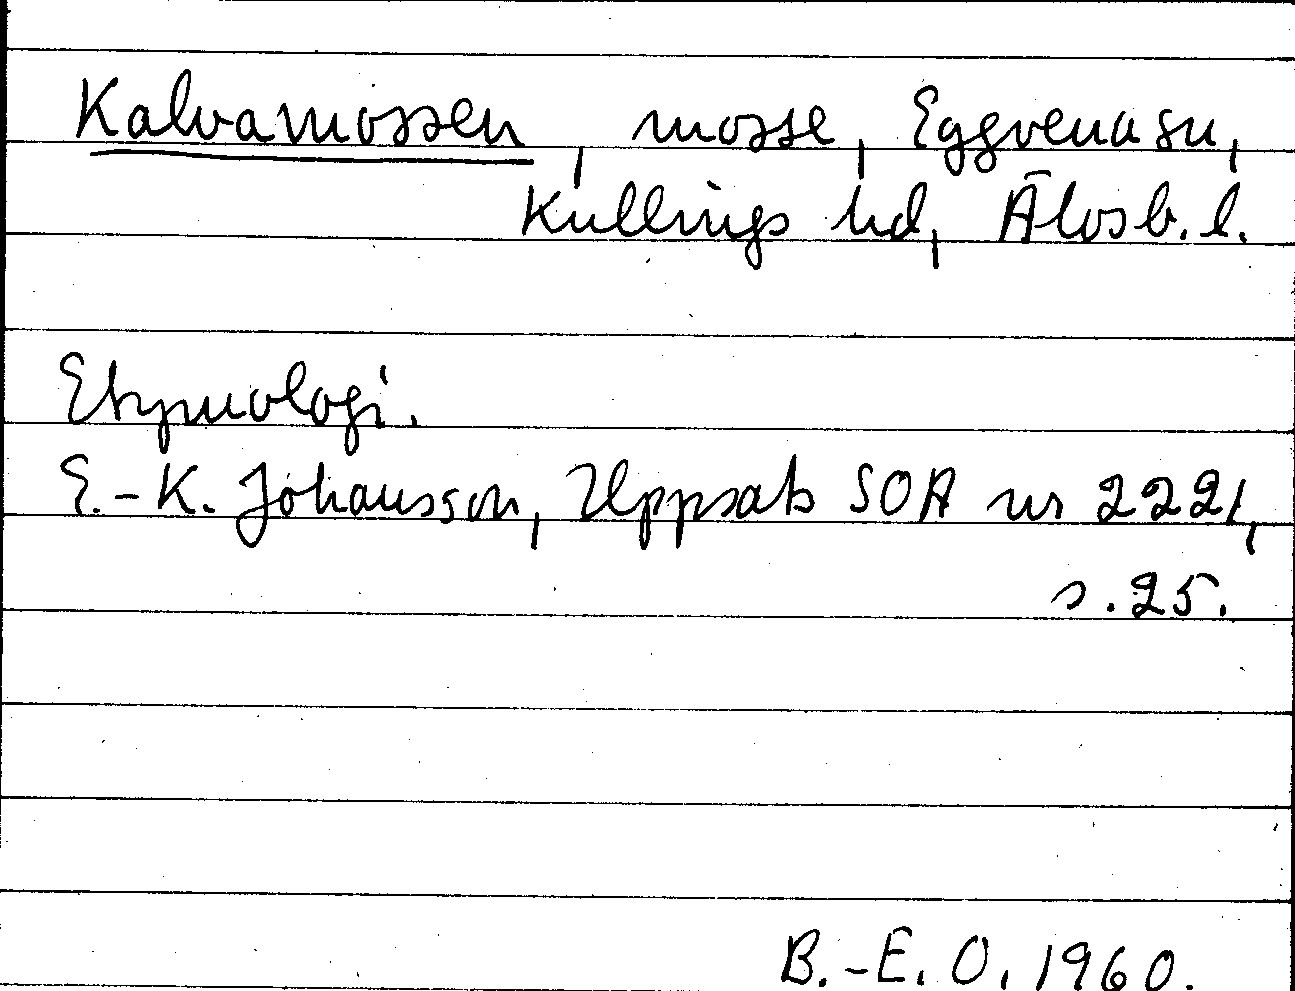 Kalvamossen, mosse, Eggvena sn,
Kullings hd, Älvsb. l.
Etymologi.
E.-K. Johansson, Uppsats SOA nr 2221,
s. 25.
B.-E. O. 1960.